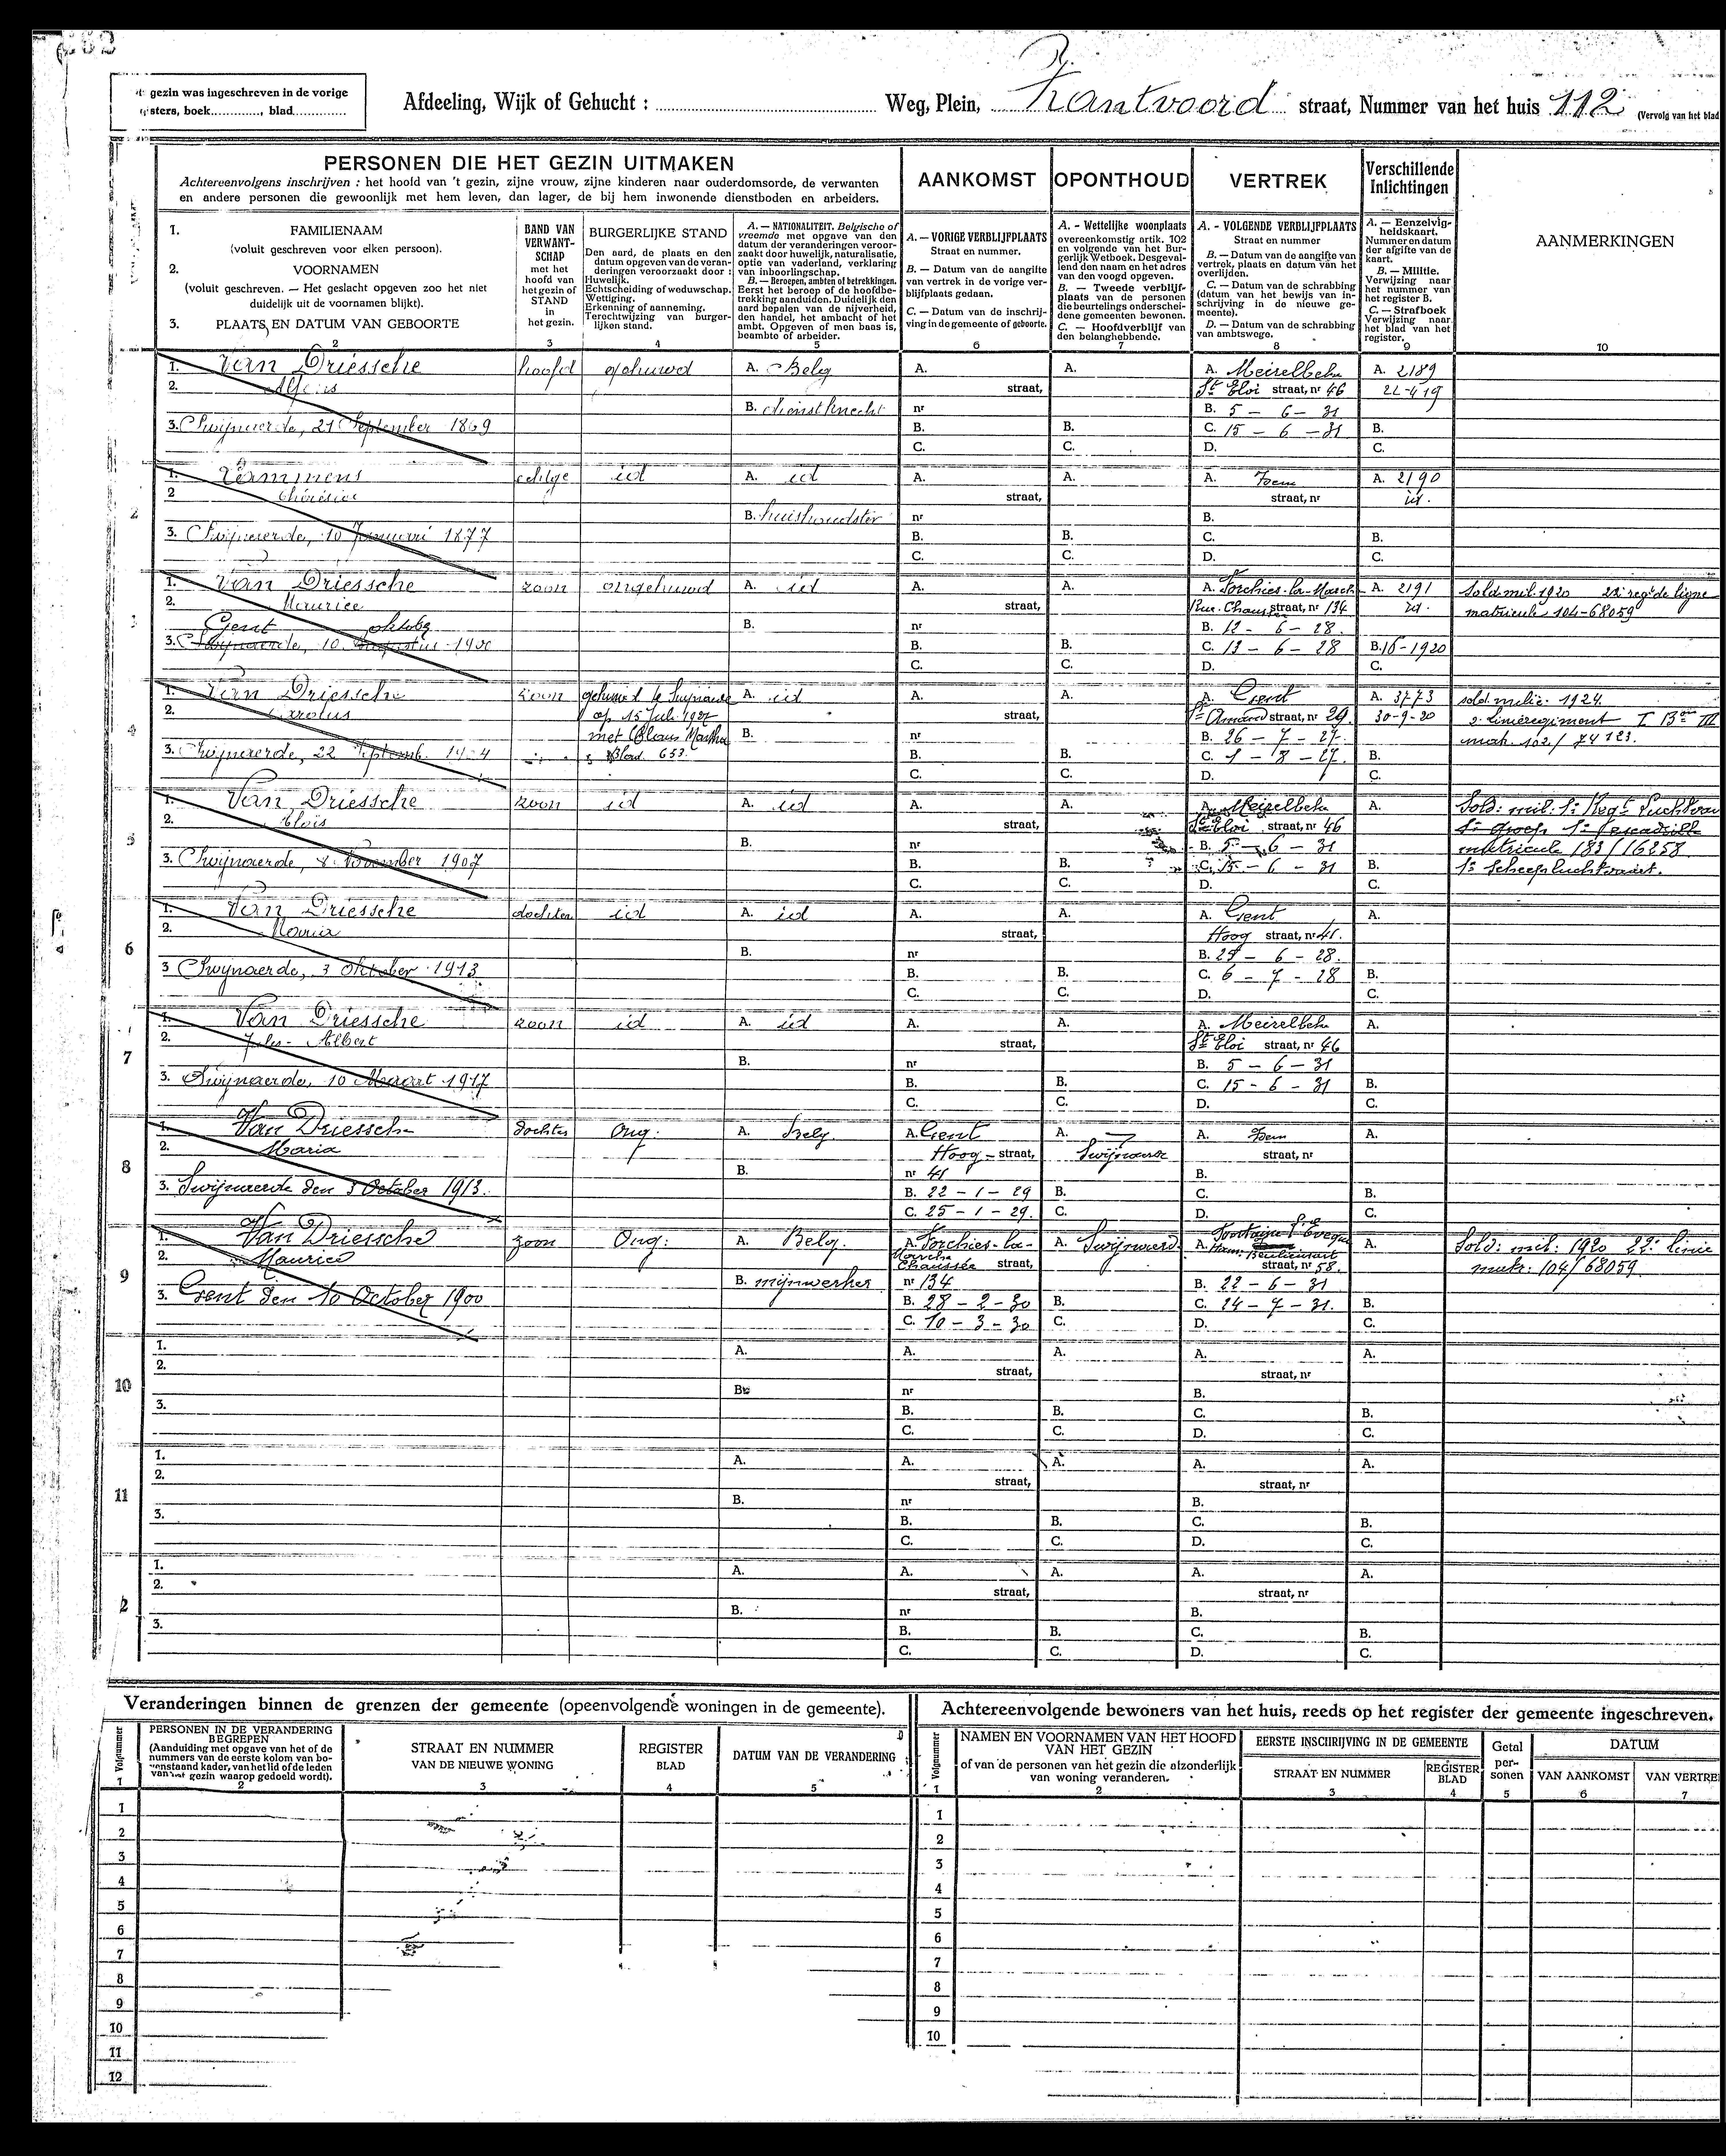 t gezin was ingeschreven in de vorige
sters, boek............., blad..............
Afdeeling, Wijk of Gehucht : ........ Weg, Plein, Rantvoord straat, Nummer van het huis 112 (Vervolg van het blad
PERSONEN DIE HET GEZIN UITMAKEN
Achtereenvolgens inschrijven : het hoofd van 't gezin, zijne vrouw, zijne kinderen naar ouderdomsorde, de verwanten
en andere personen die gewoonlijk met hem leven, dan lager, de bij hem inwonende dienstboden en arbeiders.
AANKOMST
OPONTHOUD
VERTREK
Verschillende
Inlichtingen
1. FAMILIENAAM
(voluit geschreven voor elken persoon).
2. VOORNAMEN
(voluit geschreven. — Het geslacht opgeven zoo het niet
duidelijk uit de voornamen blijkt).
3. PLAATS EN DATUM VAN GEBOORTE
2
BAND VAN
VERWANT-
SCHAP
met het
hoofd van
het gezin of
STAND
in
het gezin.
3
BURGERLIJKE STAND
Den aard, de plaats en den
datum opgeven van de veran-
deringen veroorzaakt door :
Huwelijk.
Echtscheiding of weduwschap.
Wettiging.
Erkenning of aanneming.
Terechtwijzing van burger-
lijken stand.
4
A. — NATIONALITEIT. Belgische of
vreemde met opgave van den
datum der veranderingen veroor-
zaakt door huwelijk, naturalisatie,
optie van vaderland, verklaring
van inboorlingschap.
B. — Beroepen, ambten of betrekkingen.
Eerst het beroep of de hoofdbe-
trekking aanduiden. Duidelijk den
aard bepalen van de nijverheid,
den handel, het ambacht of het
ambt. Opgeven of men baas is,
beambte of arbeider.
5
A. — VORIGE VERBLIJFPLAATS
Straat en nummer.
B. — Datum van de aangifte
van vertrek in de vorige ver-
blijfplaats gedaan.
C. — Datum van de inschrij-
ving in de gemeente of geboorte.
6
A. - Wettelijke woonplaats
overeenkomstig artik. 102
en volgende van het Bur-
gerlijk Wetboek. Desgeval-
lend den naam en het adres
van den voogd opgeven.
B. — Tweede verblijf-
plaats van de personen
die beurtelings onderschei-
dene gemeenten bewonen.
C. — Hoofdverblijf van
den belanghebbende.
7
A. - VOLGENDE VERBLIJFPLAATS
Straat en nummer
B. — Datum van de aangifte van
vertrek, plaats en datum van het
overlijden.
C. — Datum van de schrabbing
(datum van het bewijs van in-
schrijving in de nieuwe ge-
meente).
D. — Datum van de schrabbing
van ambtswege.
8
A. — Eenzelvig-
heidskaart.
Nummer en datum
der afgifte van de
kaart.
B. — Militie.
Verwijzing naar
het nummer van
het register B.
C. — Strafboek
Verwijzing naar
het blad van het
register.
9
AANMERKINGEN
10
1. Van Driessche hoofd gehuwd A. Belg A. A. A. Meirelbeke A. 2189
2. Alfons straat, St Eloi straat, nr 46 22-4-19
B. dienstknecht nr B. 5 - 6 - 31
3. Swijnaerde, 21 September 1869 B. B. C. 15 - 6 - 31 B.
C. C. D. C.
1. echtge id A. id A. A. A. Idem A. 2190
2 straat, straat, nr id.
B. huishoudster nr B.
3. Swijnaerde, 10 Januari 1877 B. B. C. B.
C. C. D. C.
1. Van Driessche zoon ongehuwd A. id A. A. A. Forchies-la-March A. 2191 Sold. mil. 1920 22e regt de ligne
2. Maurice straat, Rue Chaussée straat, nr 134 id. matricule 104-68059
Gent oktober B. nr B. 12 - 6 - 28.
3. Swijnaerde, 10 Augustus 1900 B. B. C. 13 - 6 - 28 B. 16-1920
C. C. D. C.
1. Van Driessche zoon gehuwd te Swijnaerde A. id A. A. A. Gent A. 3773 sold. milic. 1924.
2. Carolus op 15 Juli 1927 straat, St Amand straat, nr 29 30-9-20 2e linieregiment I Bon III
met Claus Martha B. nr B. 26 - 7 - 27. matr. 102/74123.
3. Swijnaerde, 22 Septemb. 1904 Blad. 653. B. B. C. 1 - 8 - 27. B.
C. C. D. C.
1. Van Driessche zoon id A. id A. A. A. Meirelbeke A. Sold: mil. 1e Regt Luchtvaa
2. Aloïs straat, St Eloi straat, nr 46 1e Groep 1e Escadrille
B. nr B. 5 - 6 - 31 matricule 183/16258
3. Swijnaerde, 8 November 1907 B. B. C. 15 - 6 - 31 B.
C. C. D. C.
6
1. Van Driessche dochter id A. id A. A. A. Gent A.
2. Maria straat, Hoog straat, nr 41.
B. nr B. 29 - 6 - 28.
3 Swijnaerde, 3 oktober 1913 B. B. C. 6 - 7 - 28 B.
C. C. D. C.
7
1. Van Driessche zoon id A. id A. A. A. Meirelbeke A.
2. Jules - Albert straat, St Eloi straat, nr 46
B. nr B. 5 - 6 - 31
3. Swijnaerde, 10 Maart 1917 B. B. C. 15 - 6 - 31 B.
C. C. D. C.
8
1. Van Driessche dochter Ong. A. Belg A. Gent A. A. Idem A.
2. Maria Hoog - straat, Swijnaarde straat, nr
B. nr 41 B.
3. Swijnaerde den 3 October 1913. B. 22 - 1 - 29 B. C. B.
C. 25 - 1 - 29. C. D. C.
9
1. Van Driessche zoon Ong: A. Belg. A. Forchies-la- A. Swijnaerd. A. Fontaine-l'Evêque A. Sold: mil: 1920 22e linie
2. Maurice Marche Chaussée straat, Ham: Beulieusart straat, nr 58. matr: 104/68059
B. mijnwerker nr 134 B. 22 - 6 - 31
3. Gent den 10 October 1900 B. 28 - 2 - 30 B. C. 24 - 7 - 31. B.
C. 10 - 3 - 30 C. D. C.
10
1. A. A. A. A. A.
2. straat, straat, nr
B. nr B.
3. B. B. C. B.
C. C. D. C.
11
1. A. A. A. A. A.
2. straat, straat, nr
B. nr B.
3. B. B. C. B.
C. C. D. C.
2
1. A. A. A. A. A.
2. straat, straat, nr
B. nr B.
3. B. B. C. B.
C. C. D. C.
Veranderingen binnen de grenzen der gemeente (opeenvolgende woningen in de gemeente).
Volgnummer
1
PERSONEN IN DE VERANDERING
BEGREPEN
(Aanduiding met opgave van het of de
nummers van de eerste kolom van bo-
venstaand kader, van het lid of de leden
van het gezin waarop gedoeld wordt).
2
STRAAT EN NUMMER
VAN DE NIEUWE WONING
3
REGISTER
BLAD
4
DATUM VAN DE VERANDERING
5
1
2
3
4
5
6
7
8
9
10
11
12
Achtereenvolgende bewoners van het huis, reeds op het register der gemeente ingeschreven.
Volgnummer
1
NAMEN EN VOORNAMEN VAN HET HOOFD
VAN HET GEZIN
of van de personen van het gezin die afzonderlijk
van woning veranderen.
2
EERSTE INSCHRIJVING IN DE GEMEENTE
STRAAT EN NUMMER
3
REGISTER
BLAD
4
Getal
per-
sonen
5
DATUM
VAN AANKOMST
6
VAN VERTRE
7
1
2
3
4
5
6
7
8
9
10